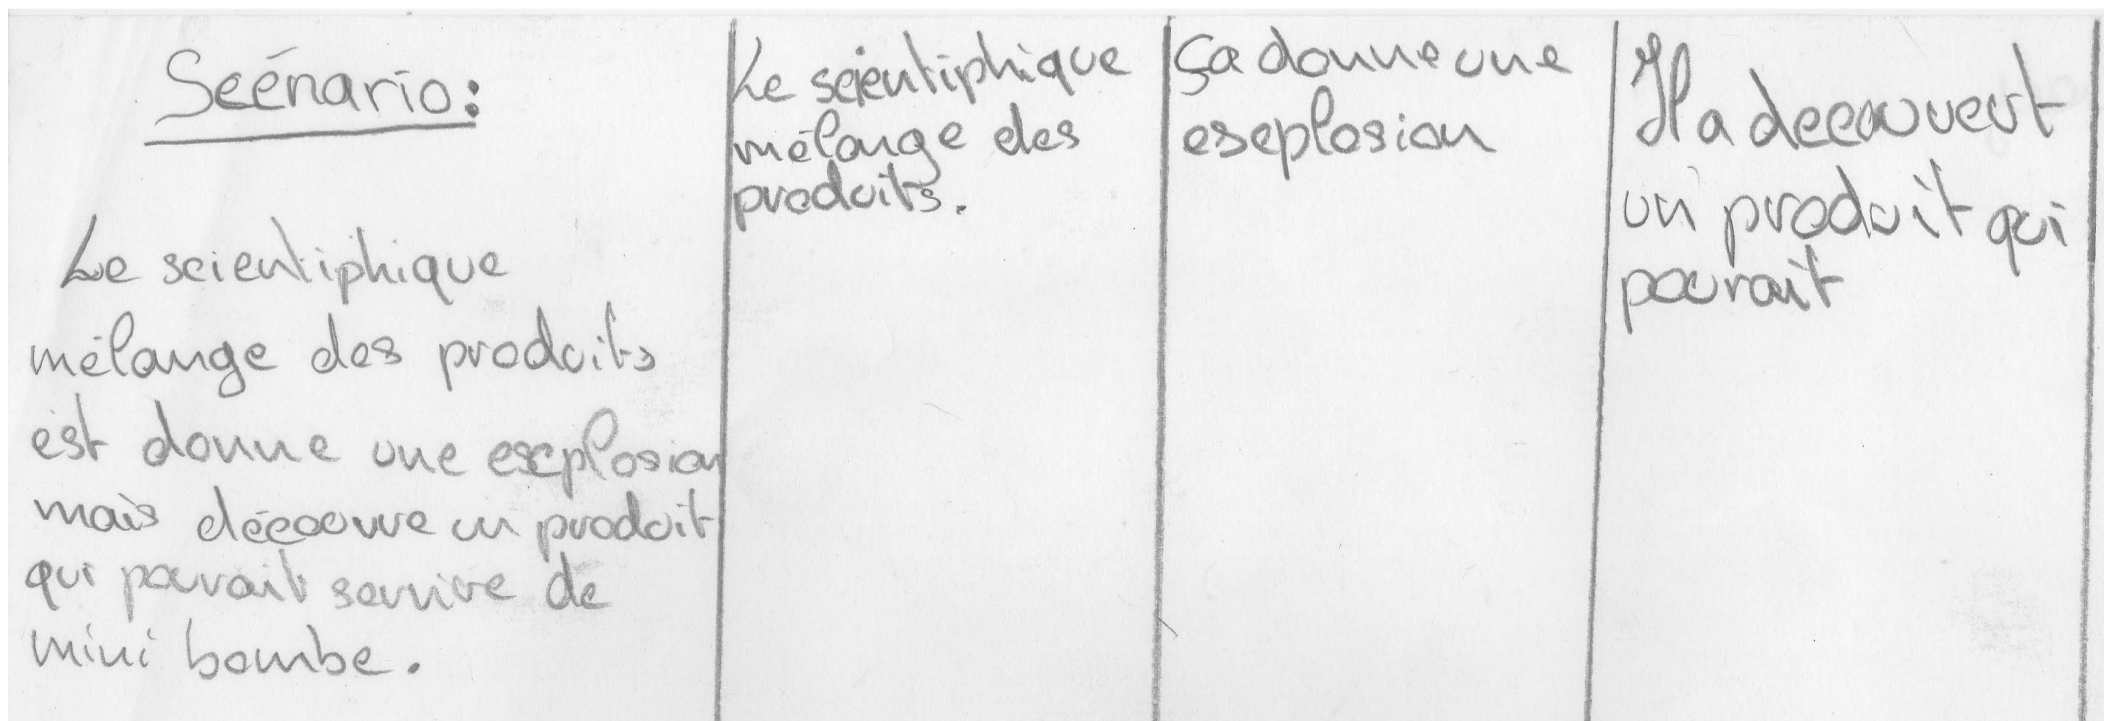 Scénario:
Le scientiphique
mélange des produits
est donne une esxplosion
mais découvre un produit
qui pourait servire de
mini bombe.
Le scientiphique
mélange des
produits.
Ça donne une
esxplosion
Il a decouvert
un produit qui
pourait